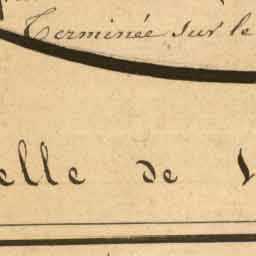 Terminée sur le
elle de